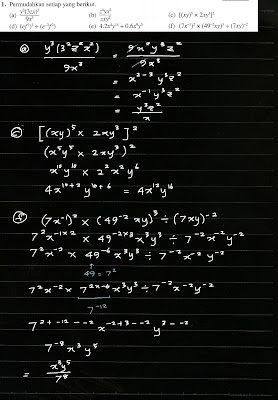 1. Permudahkan setiap yang berikut.
(a) y³(3zx)² / 9x³ (b) z⁴xy² / zxy² (c) [(xy)⁵ × 2xy³]²
(d) (ef²)³ ÷ (e⁻²f²) (e) 4.2x⁴y¹⁴ ÷ 0.6x⁹y⁵ (f) (7x⁻¹)² × (49⁻²xy)³ ÷ (7xy)⁻²
a) y³(3²z²x²) / 9x³ = 9x²y³z² / 9x³
= x²⁻³y³z²
= x⁻¹y³z²
= y³z² / x
c) [(xy)⁵ × 2xy³]²
(x⁵y⁵ × 2xy³)²
x¹⁰y¹⁰ × 2²x²y⁶
4x¹⁰⁺²y¹⁰⁺⁶ = 4x¹²y¹⁶
f) (7x⁻¹)² × (49⁻²xy)³ ÷ (7xy)⁻²
7²x⁻¹ˣ² × 49⁻²ˣ³x³y³ ÷ 7⁻²x⁻²y⁻²
7²x⁻² × 49⁻⁶x³y³ ÷ 7⁻²x⁻²y⁻²
49 = 7²
7²x⁻² × 7²ˣ⁻⁶x³y³ ÷ 7⁻²x⁻²y⁻²
7⁻¹²
7²⁺⁻¹²⁻⁻² x⁻²⁺³⁻⁻² y³⁻⁻²
7⁻⁸x³y⁵
= x³y⁵ / 7⁸